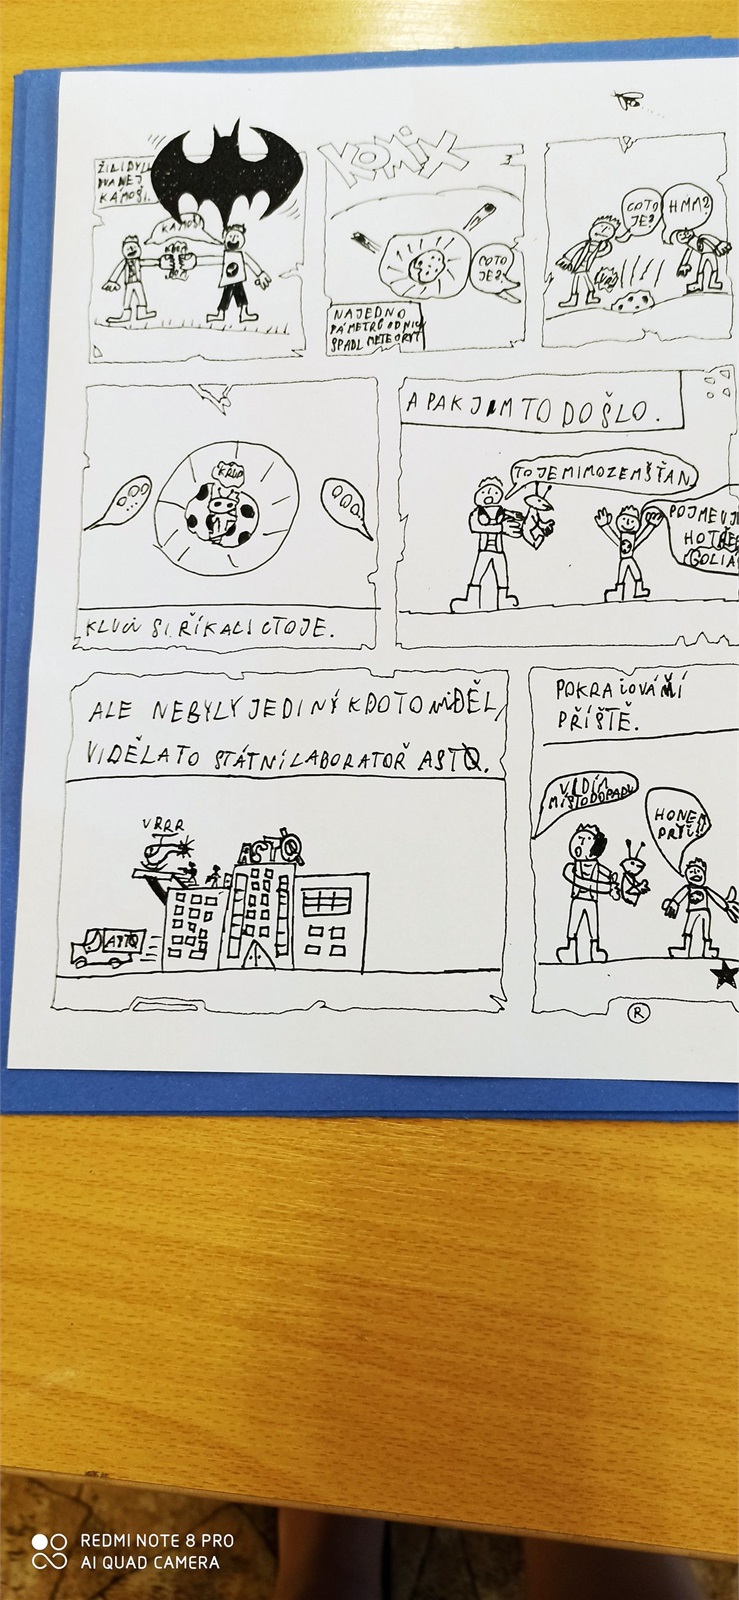 ŽILI BYLI
DVA NEJ
KÁMOŠI.
KÁMOŠI
KOMIX
3
CO TO
JE?
NAJEDNO
PÁ METRŮ OD NICH
SPADL METEORYT
CO TO
JE?
HMM?
KŘUP
KLUCI SI ŘÍKALI CTOJE.
A PAK JIM TO DOŠLO.
TO JE MIMOZEMŠŤAN
POJMEUJ
HO TŘE
GOLIÁ
ALE NEBYLY JEDINÝ KDO TO VIDĚL,
VIDĚLA TO STÁTNÍ LABORATOŘ ASTO.
VRRR
ASTO
ASTO
POKRAČOVÁNÍ
PŘÍŠTĚ.
VIDÍM
MÍSTO DOPADU
HONEM
PRYČ!
R
REDMI NOTE 8 PRO
AI QUAD CAMERA